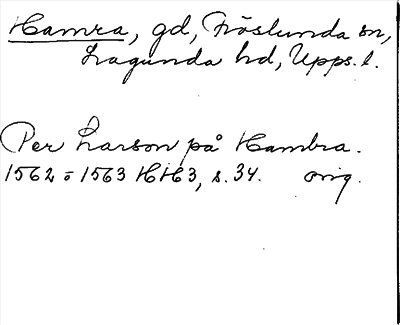 Hamra, gd, Fröslunda sn,
Lagunda hd, Upps. l.
Per Larson på Hambra.
1562 = 1563 HH3, s. 34. orig.